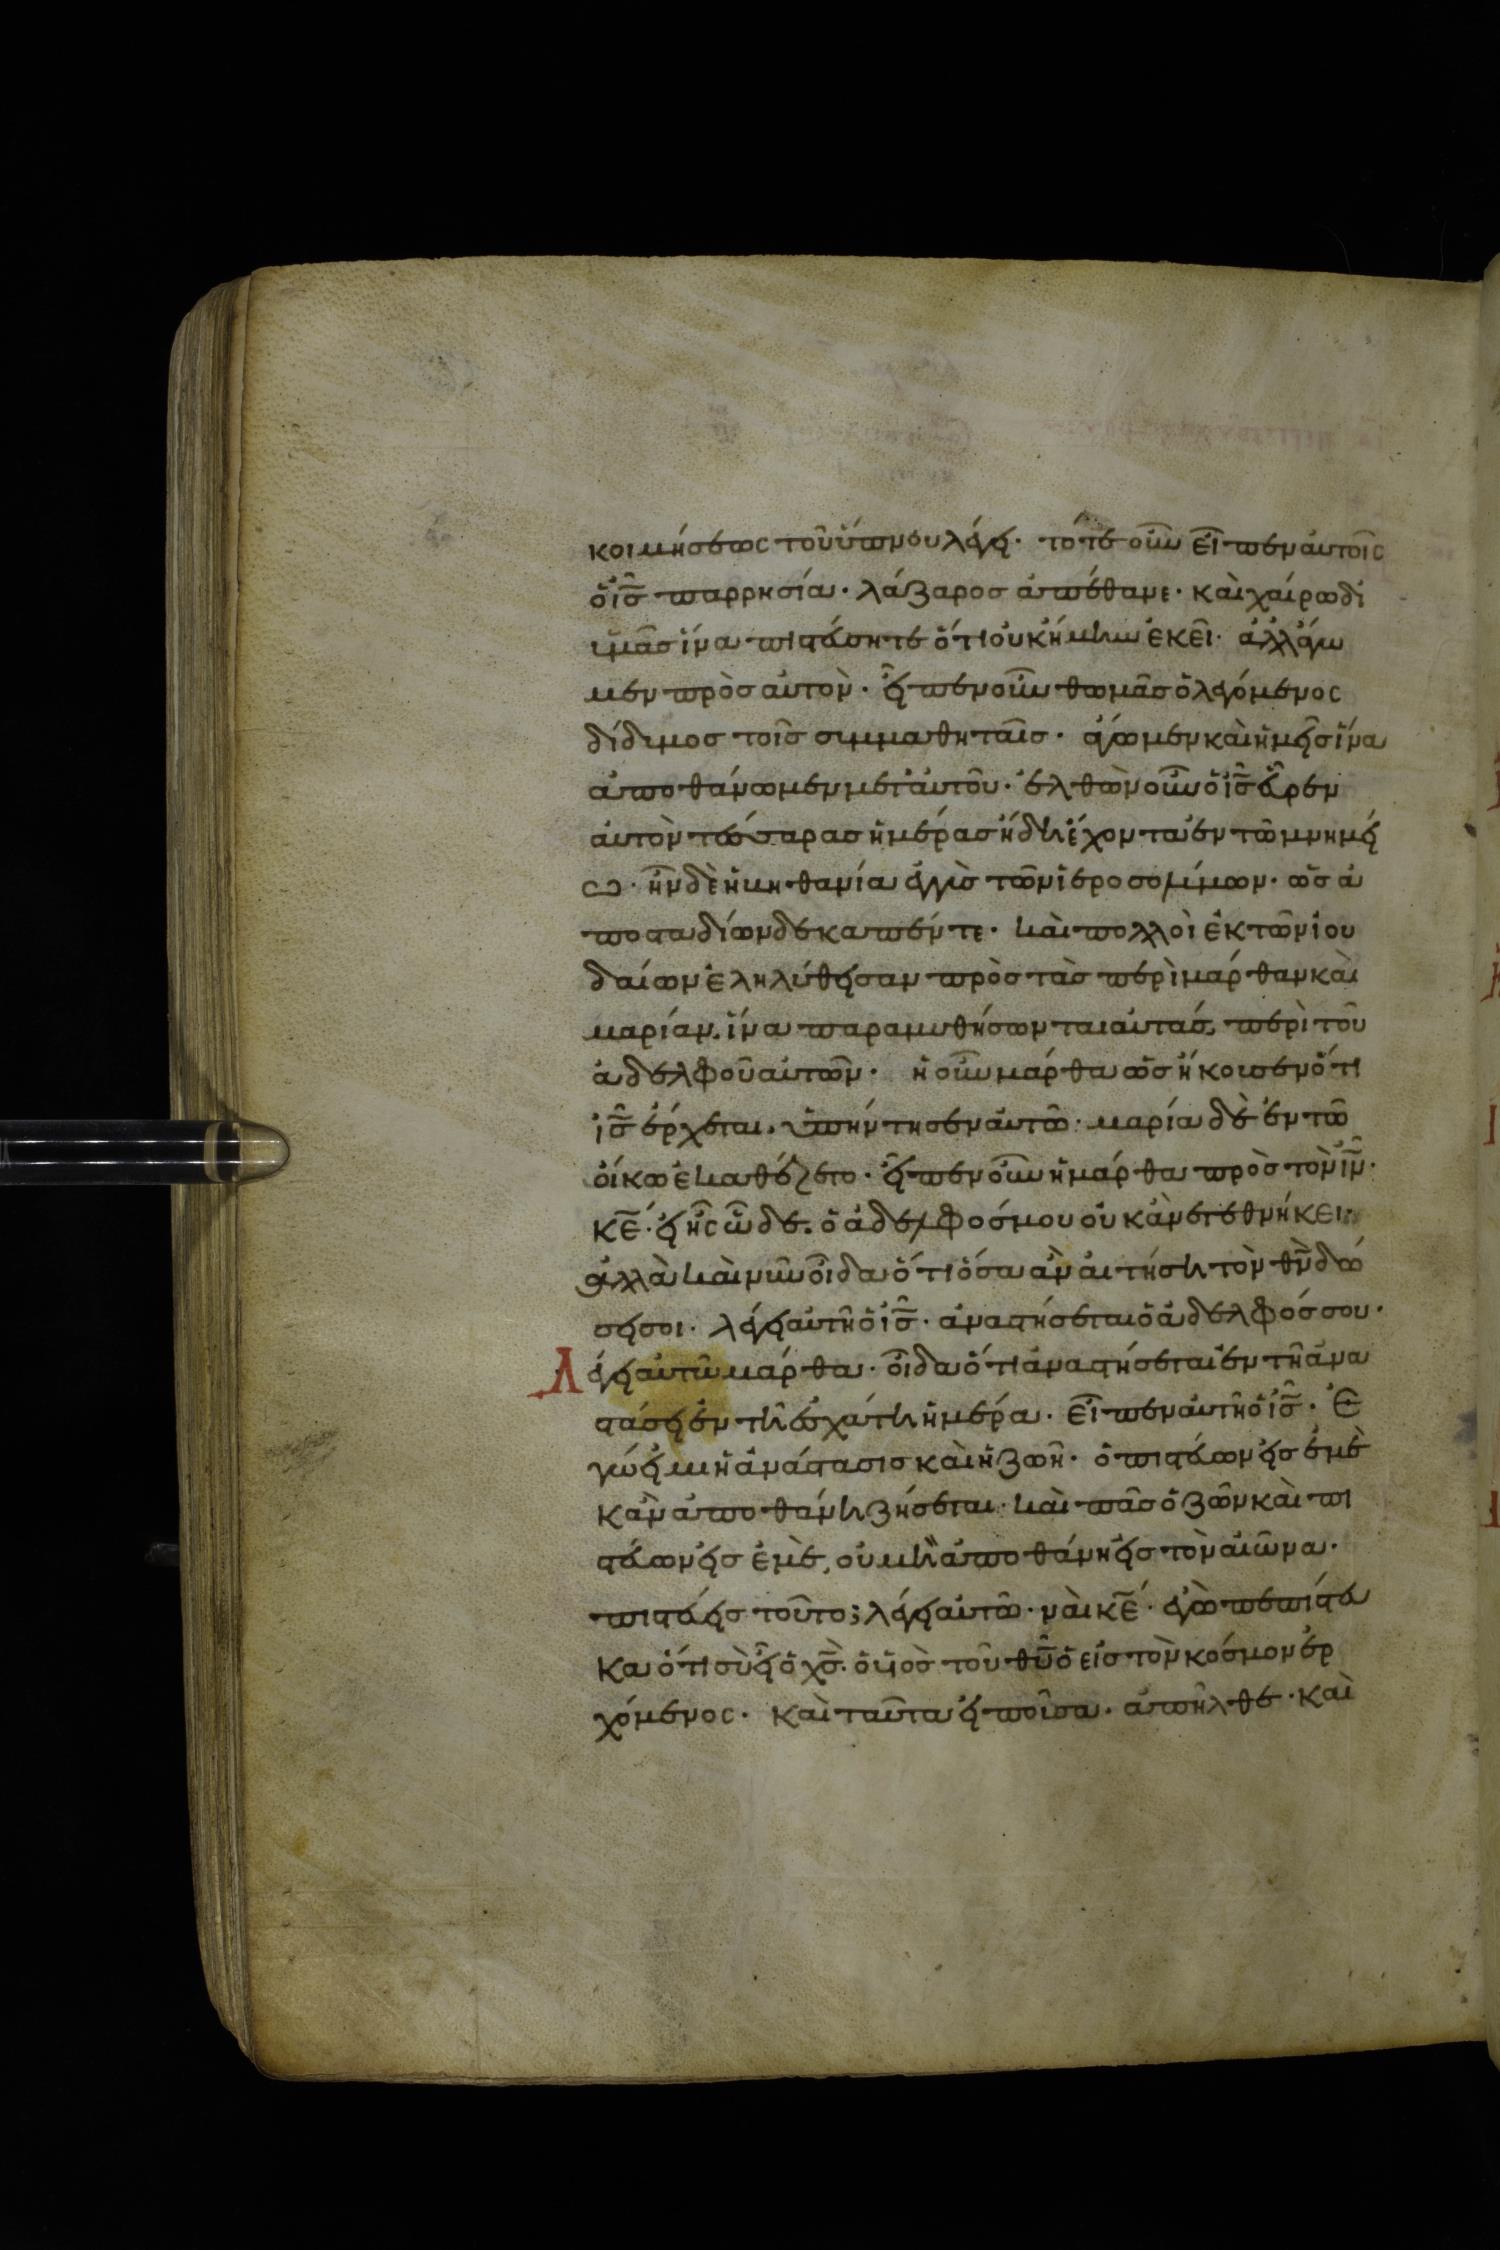 κοιμήσεως τοῦ ὕπνου λέγει· τότε οὖν εἶπεν αὐτοῖς
ὁ ἰς̅ παρρησία· λάζαρος ἀπέθανε· καὶ χαίρω δι
ὑμᾶς ἵνα πιστεύσητε ὅτι οὐκ ἤμην ἐκεῖ· ἀλλ' ἄγω
μεν πρὸς αὐτόν· εἶπεν οὖν θωμᾶς ὁ λεγόμενος
δίδυμος τοῖς συμμαθηταῖς· ἄγωμεν καὶ ἡμεῖς ἵνα
ἀποθάνωμεν μετ' αὐτοῦ· ἐλθὼν οὖν ὁ ἰς̅ εὗρεν
αὐτὸν τέσσαρας ἡμέρας ἤδη ἔχοντα ἐν τῶ μνημεί
ω· ἦν δὲ ἡ βηθανία ἐγγὺς τῶν ἱεροσολύμων· ὡς ἀ
πο σταδίων δεκαπέντε· καὶ πολλοὶ ἐκ τῶν ἰου
δαίων ἐληλύθεισαν πρὸς τὰς περὶ μάρθαν καὶ
μαρίαν, ἵνα παραμυθήσωνται αὐτὰς, περὶ τοῦ
ἀδελφοῦ αὐτῶν· ἡ οὖν μάρθα ὡς ἤκουσεν ὅτι
ἰς̅ ἔρχεται, ὑπήντησεν αὐτῶ· μαρία δὲ ἐν τῶ
οἴκω ἐκαθέζετο· εἶπεν οὖν ἡ μάρθα πρὸς τὸν ἰν̅·
κε̅· εἰ ἦς ὧδε, ὁ ἀδελφός μου οὐκ ἂν ἐτεθνήκει·
ἀλλὰ καὶ νῦν οἶδα ὅτι ὅσα ἂν αἰτήση τὸν θν̅ δώ
σει σοι· λέγει αὐτῆ ὁ ἰς̅· ἀναστήσεται ὁ ἀδελφός σου·
Λέγει αὐτῶ μάρθα· οἶδα ὅτι ἀναστήσεται ἐν τῆ ἀνα
στάσει ἐν τῆ ἐσχάτη ἡμέρα· εἶπεν αὐτῆ ὁ ἰς̅· Ἐ
γώ εἰμι ἡ ἀνάστασις καὶ ἡ ζωή· ὁ πιστεύων εἰς ἐμὲ
κἂν ἀποθάνη ζήσεται· καὶ πᾶς ὁ ζῶν καὶ πι
στεύων εἰς ἐμὲ, οὐ μὴ ἀποθάνη εἰς τὸν αἰῶνα·
πιστεύεις τοῦτο; λέγει αὐτῶ· ναὶ κε̅· ἐγὼ πεπίστευ
κα ὅτι σὺ εἶ ὁ χς̅· ὁ υἱὸς τοῦ θυ̅ ὁ εἰς τὸν κόσμον ἐρ
χόμενος· καὶ ταῦτα εἰποῦσα· ἀπῆλθε· καὶ